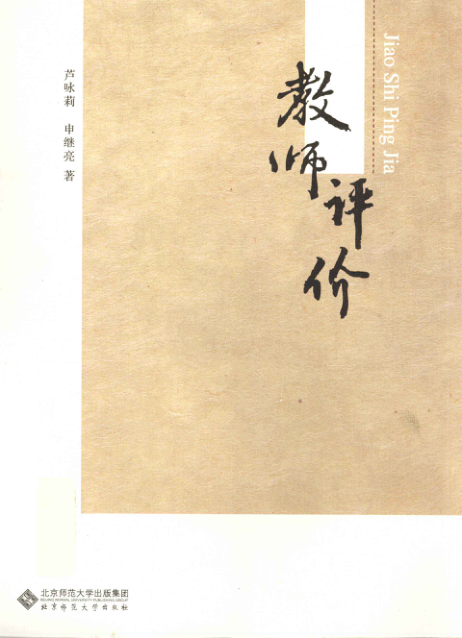 Jiao Shi Ping Jia
教师评价
芦咏莉 申继亮 著
北京师范大学出版集团
BEIJING NORMAL UNIVERSITY PUBLISHING GROUP
北京师范大学出版社